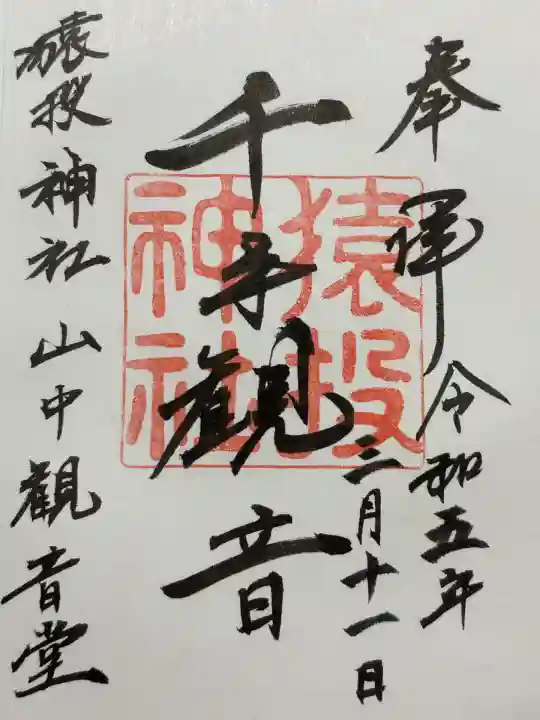 奉拝
令和五年
三月十一日
千手観音
猿投
神社
猿投神社山中観音堂